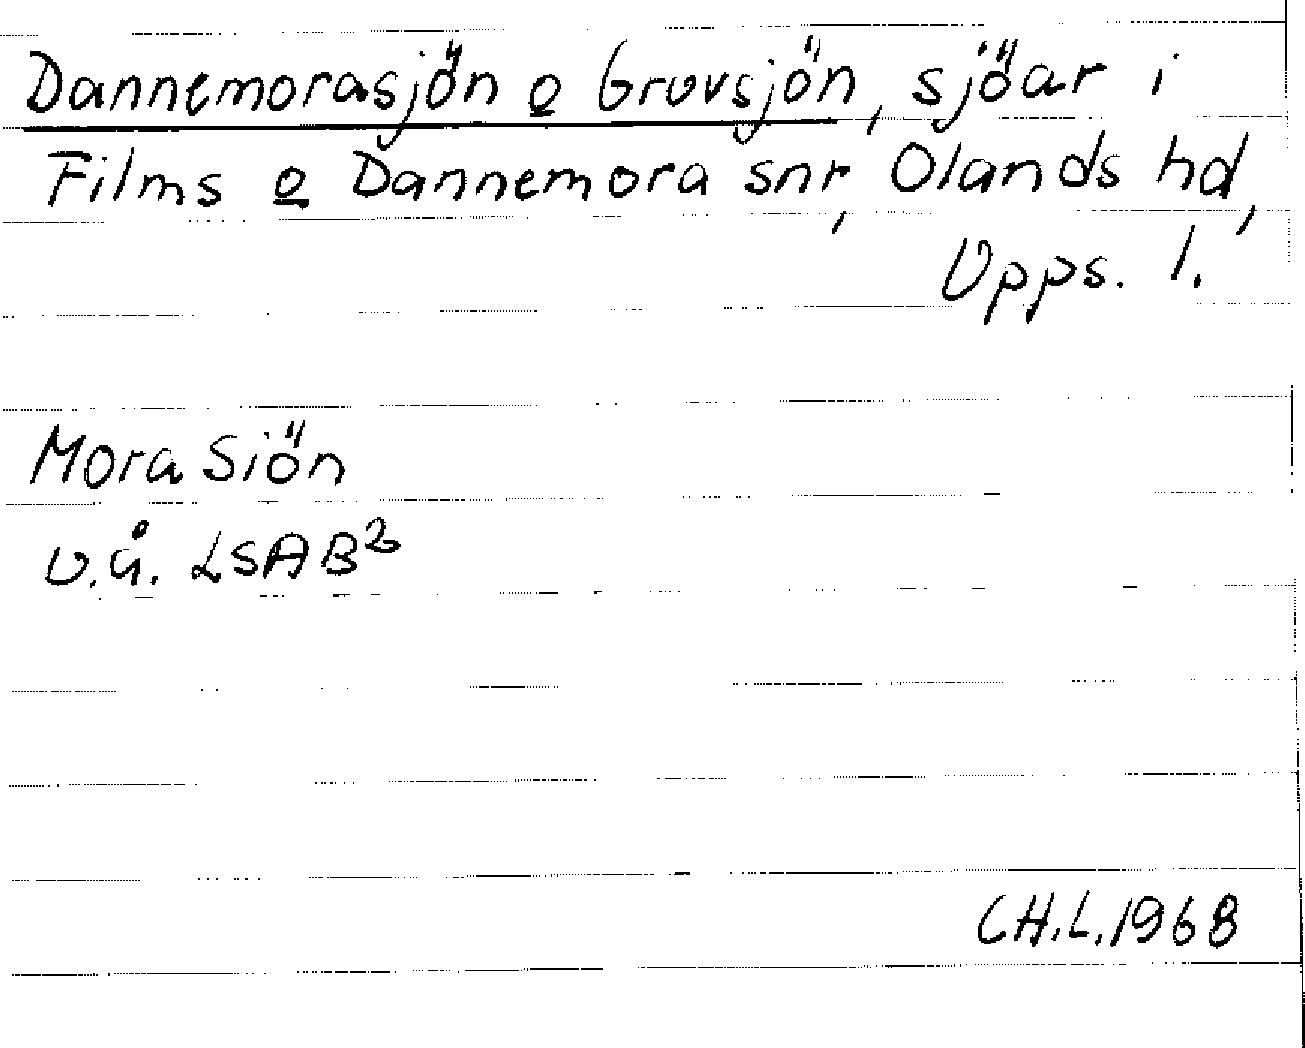 Dannemorasjön o Gruvsjön, sjöar i
Films o Dannemora snr, Olands hd,
Upps. l.
Mora Siön
u.å. LSA B²
CH.L. 1968